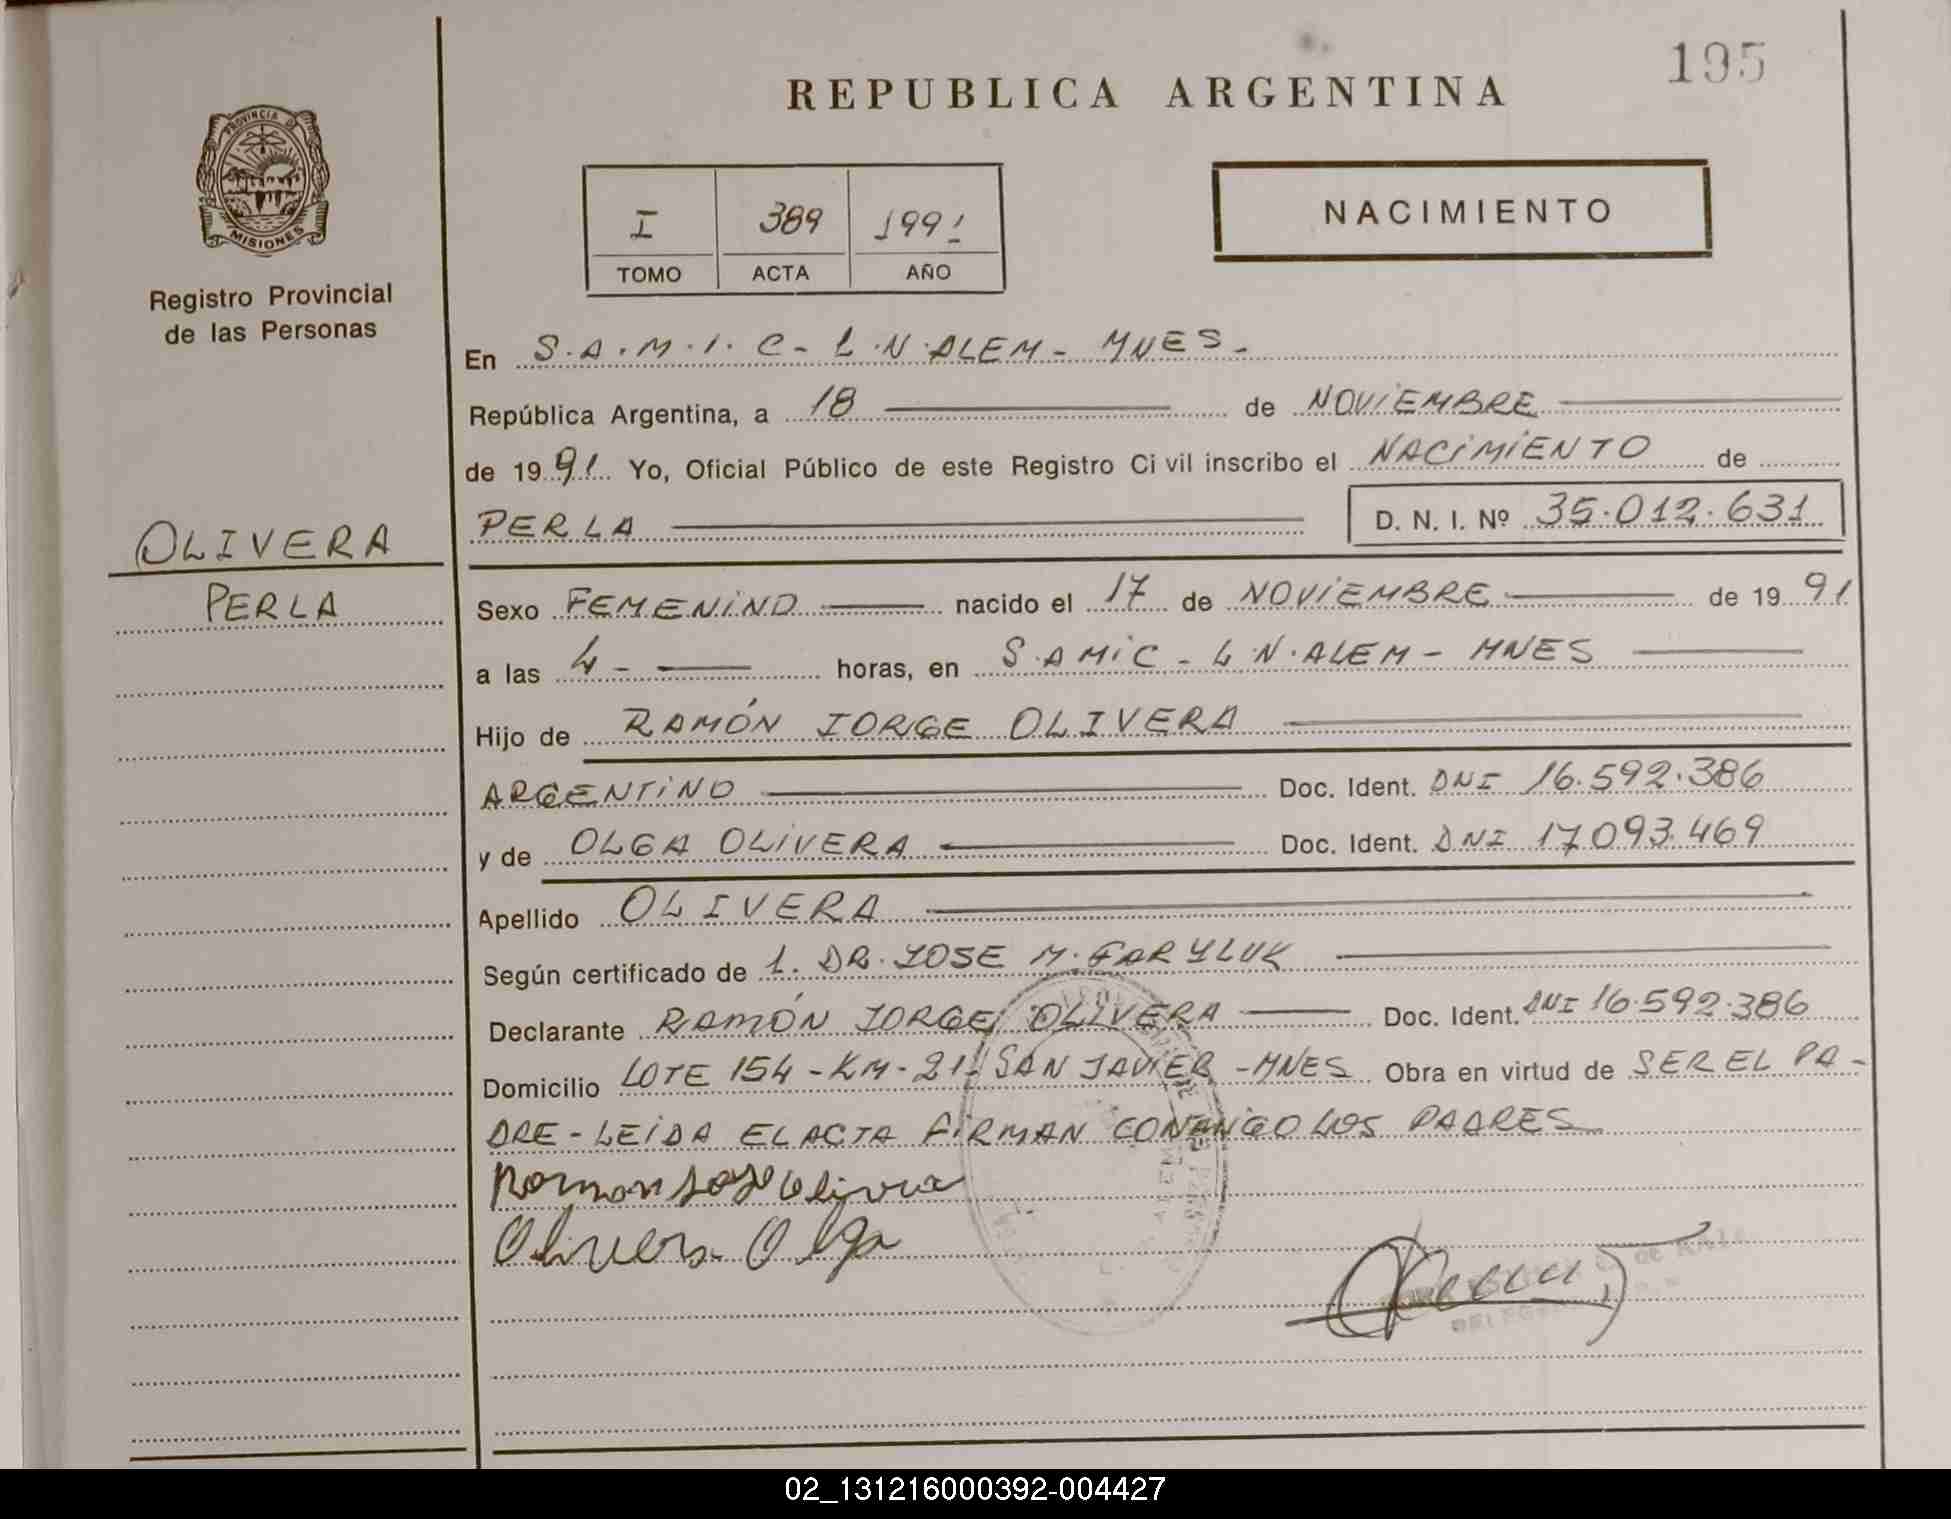 195
REPUBLICA ARGENTINA
PROVINCIA DE
MISIONES
Registro Provincial
de las Personas
I 389 1991
TOMO ACTA AÑO
NACIMIENTO
En S.A.M.I.C - L.N.ALEM - MNES.-
República Argentina, a 18 de NOVIEMBRE
de 1991. Yo, Oficial Público de este Registro Civil inscribo el NACIMIENTO de
PERLA D. N. I. Nº 35.012.631
OLIVERA
PERLA
Sexo FEMENINO nacido el 17 de NOVIEMBRE de 1991
a las 4 - horas, en S.AMIC - L.N.ALEM - MNES
Hijo de RAMÓN JORGE OLIVERA
ARGENTINO Doc. Ident. DNI 16.592.386
y de OLGA OLIVERA Doc. Ident. DNI 17.093.469
Apellido OLIVERA
Según certificado de 1. DR. JOSE M.
Declarante RAMÓN JORGE OLIVERA Doc. Ident. DNI 16.592.386
Domicilio LOTE 154 - KM - 21 - SAN JAVIER - MNES Obra en virtud de SER EL PA-
DRE - LEIDA EL ACTA FIRMAN CONMIGO LOS PADRES
Ramon Jorge Olivera
Olivera Olga
02_131216000392-004427